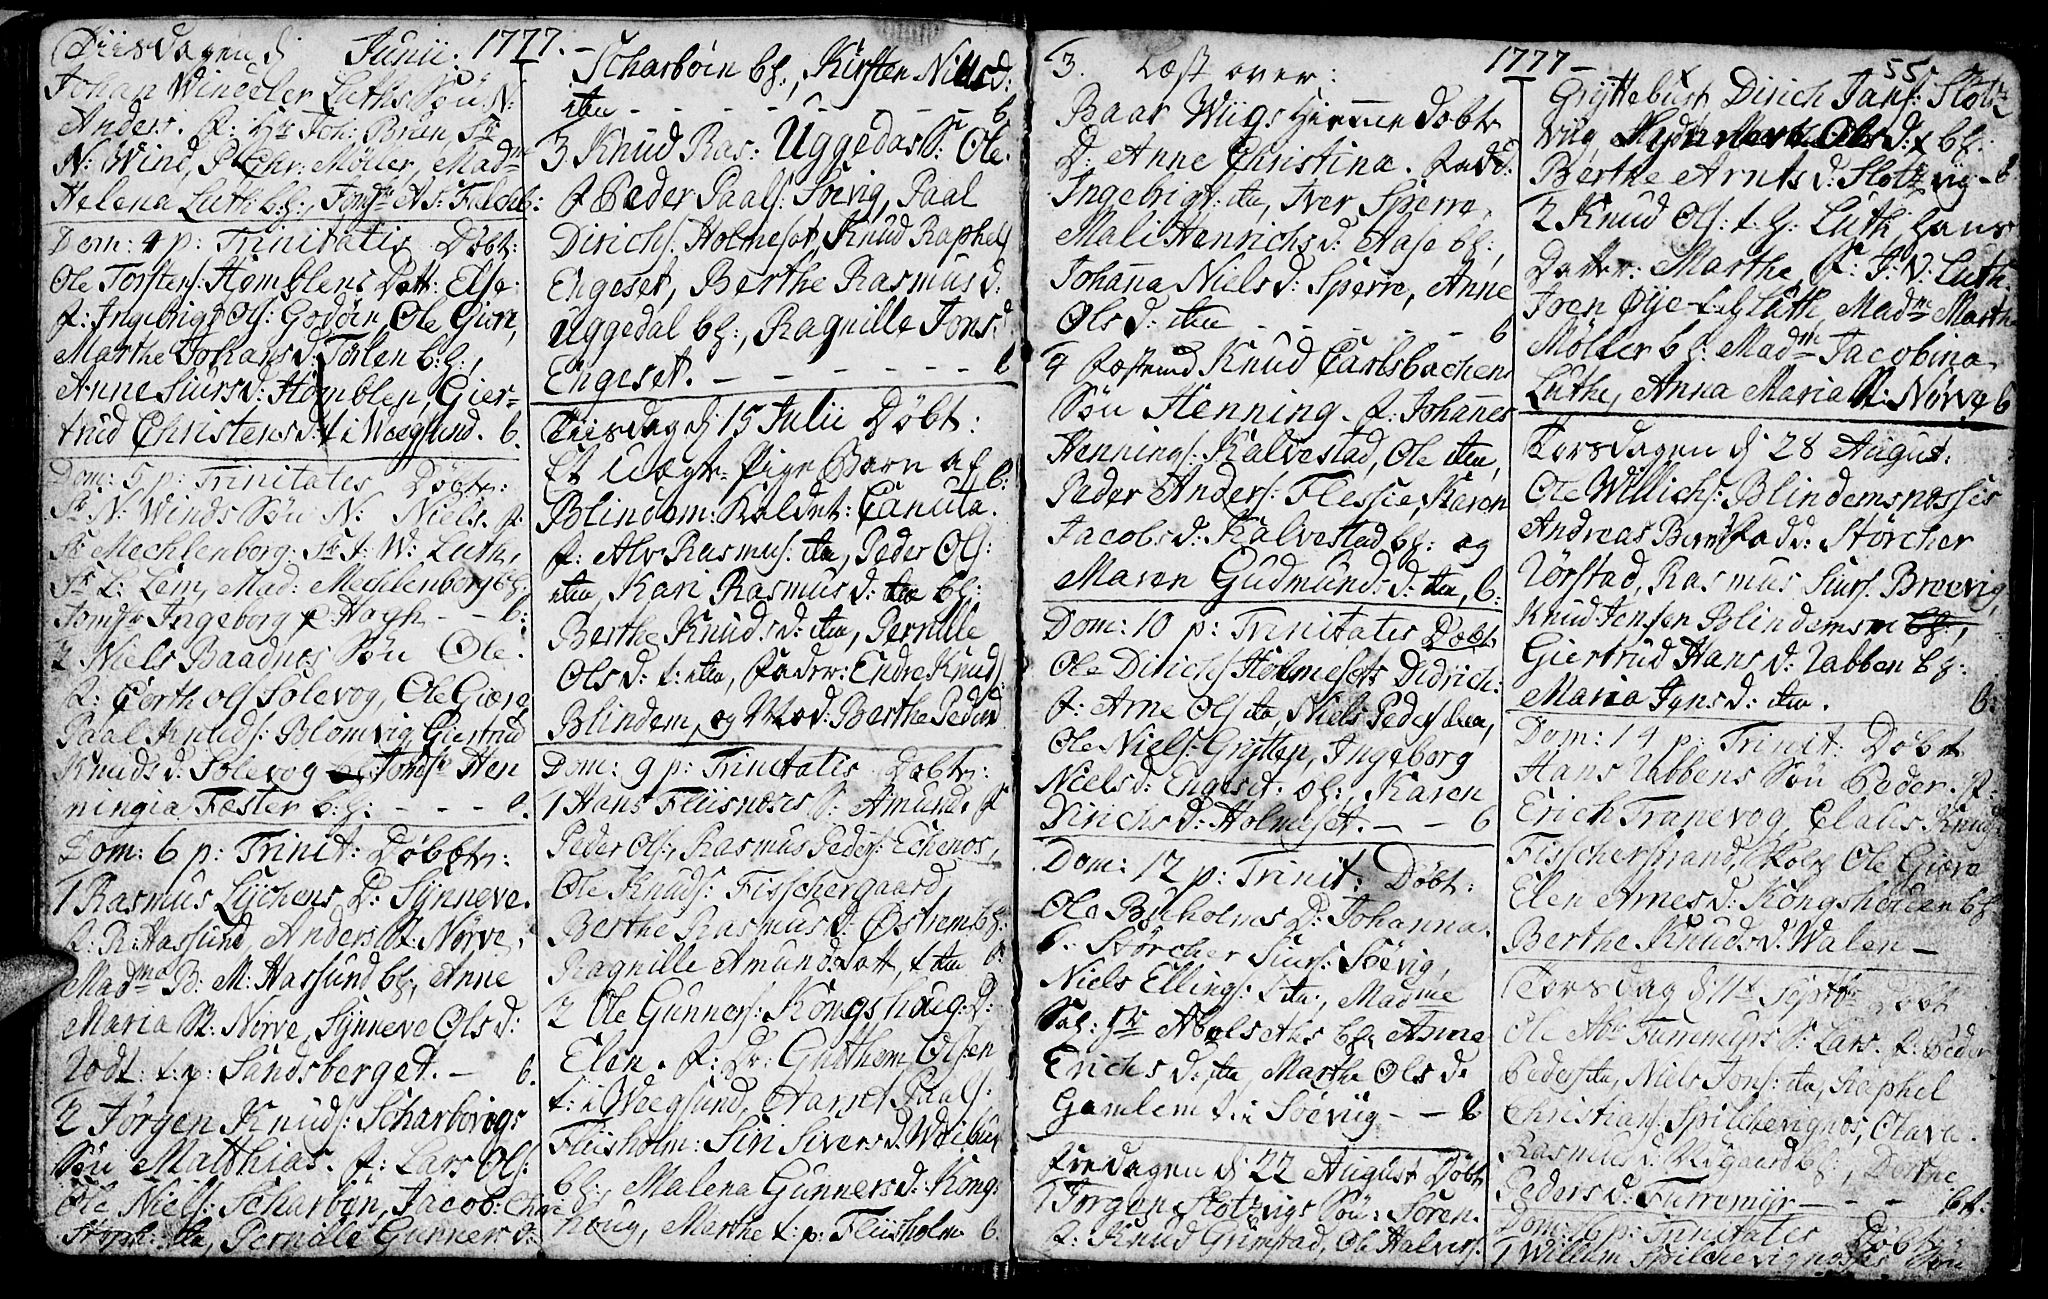 Tiirsdagen d: Junii: 1777.
Johan Windeler Luths Søn N:
Anders. f: Hr Joh: Bruun Sr
N: Wind, P Chr: Møller, Madme
Helena Luth b:f:, Jomfr A S: Feldt b:
Dom: 4 p: Trinitatis Døbt:
Ole Torstens: Homblens Datt: Else:
f: Ingebrigt Ols: Godøen Ole Giøre,
Marthe Johans d: Torlen b:f:,
Anne Siurs d: Homblen, Gier-
trud Christens d: t: i Wæegsund. 6.
Dom: 5 p: Trinitates Døbt:
Sr N: Winds Søn N: Niels. f:
Sr Mechlenborg: Sr J: W: Luth,
Sr L: Lem, Mad: Mechlenborg bf:
Jomfr Ingeborg Hagh - - 6:
2 Niels Baadnes Søn Ole:
f: Berthol Solevog, Ole Giøre
Paal Knuds: Blomvig Giertrud
Knuds d: Solevog Jomfr Hen
ningia Fæster b:f: - - - 6.
Dom: 6 p: Trinit: Døbt:
1 Rasmus Lychens D: Synneve.
f: R: Hassund, Anders R: Nørve,
Madme B: M: Hassund bf:, Anne
Maria R: Nørve, Synneve Ols d:
Nodt: t: p: Sandsberget. - 6.
2 Jørgen Knuds: Scharbovigs
Søn Matthias. f: Lars Ols:
Ole Niels: Scharbøn, Jacob: Chri
stoph: ita, Pernille Gunners d:
Scharbøin bf:, Kirsten Niels d:
ita - - - - - - 6
3 Knud Ras: Uggedas S: Ole.
f Peder Paals: Soevig, Paal
Dirichs: Holmeset, Knud Raphels
Engeset, Berthe Rasmus d:
Uggedal bf:, Ragnille Jons d:
Engeset. - - - - - - 6
Tiirsdag d: 15 Julii Døbt:
Et Uægte Pige Barn af b:
Blindem: Kaldet: Canuta.
f: Alv Rasmus: ita, Peder Ols:
ita, Kari Rasmus d: ita bf:
Berthe Knuds d: ita, Pernille
Ols d: t: ita, Fader: Endre Knuds
Blindem, og Mod: Berthe Peders d
Dom: 9 p: Trinitatis Døbt:
1 Hans Fliisnøses S: Amund. f
Peder Ols:, Rasmus Peders: Echenos,
Ole Knuds: Fisschergaard,
Berthe Rasmus d: Østrem bf:
Ragnille Amunds datt, t ita 6:
2 Ole Gunners: Kongshoug: D:
Elen. f: Dr: Gutthom Olsen
t: i Woegsund, Aarset Paals:
Fliisholm: Siri Sivers d: Weibust
bf:, Malena Gunners d: Kongs
houg, Marthe t: p: Fliisholm 6.
3. Læst over: 1777-
Baar Wiigs Hiemmedøbt
D: Anne Christina. Fadd:
Ingebrigt: ita, Iver Sperre,
Mali Henrichs d: Aase bf:,
Johana Niels d: Sperre, Anne
Ols d: ita - - - - - 6
4 Knud Carlsbachens
Søn Henning. f: Johannes
Hennings: Kalvestad, Ole ita,
Peder Anders: Flessie, Karen
Jacobs d: Kalvestad bf: og
Maren Gudmunds d: ita, 6:
Dom: 10 p: Trinitates Døbt
Ole Dirichs Holmesets Didrich:
f: Arne Ols ita, Niels Peders ita,
Ole Niels: Grytten, Ingeborg
Niels d: Engeset: bf:, Karen
Dirichs d: Holmeset. - - 6
Dom: 12 p: Trinit: Døbt:
Ole Buholms D: Johanna.
f: Størcher Siurs: Soevig,
Niels Ellings: t ita:, Madme
Sal: Hr Abelseths bf:, Anne
Erichs d: ita, Marthe Ols d:
Gamlem t: i Soeviig - - 6
Fredagen d: 22 August Døbt
1 Jørgen Slotzvigs Søn: Søren.
f: Knud Grimstad, Ole Halvors:
55
Gryttebust, Dirich Jans: Slotz
viig, Ols d: bf:
Berthe Arnts d: Slotzvig - 6
2 Knud Ols: t: h: Luth, hans
Datter: Marthe, f: J: W: Luth.
Iven Øye t:h: Luth, Madme Marthe
Møller bf: Madme Jacobina
Luth, Anna Maria R: Nørve 6
Torsdagen d: 28 August:
Ole Willichs: Blindemsnøsses
Andreas Bernt Fadd: Størcher
Nørstad, Rasmus Siurs: Breevig,
Knud Jensen Blindemsn bf:,
Giertrud Hans d: Nabben bf:
Maria Jens d: ita. 6:
Dom: 14 p: Trinit: Døbt
Hans Nabbens Søn Peder. f:
Erich Tranevog, Claus Knuds
Fisscherstrand, Ole Giøre
Elen Arnes d: Kongshougen bf
Berthe Knuds d: Walen -
Torsdag d: 11te Septbr Døbt
Ole Abr Furremyrs S: Lars. f: Peder
Peders ita, Niels Jons: ita, Raphel
Christians: Spilchevignøs, Olave
Rasmus d: Nygaard bf:, Dorthe
Peders d: Furremyr - - - 6t.
Dom: 16 p: Trinitates Døbt:
1 Willum Spilchevignøsses Søn